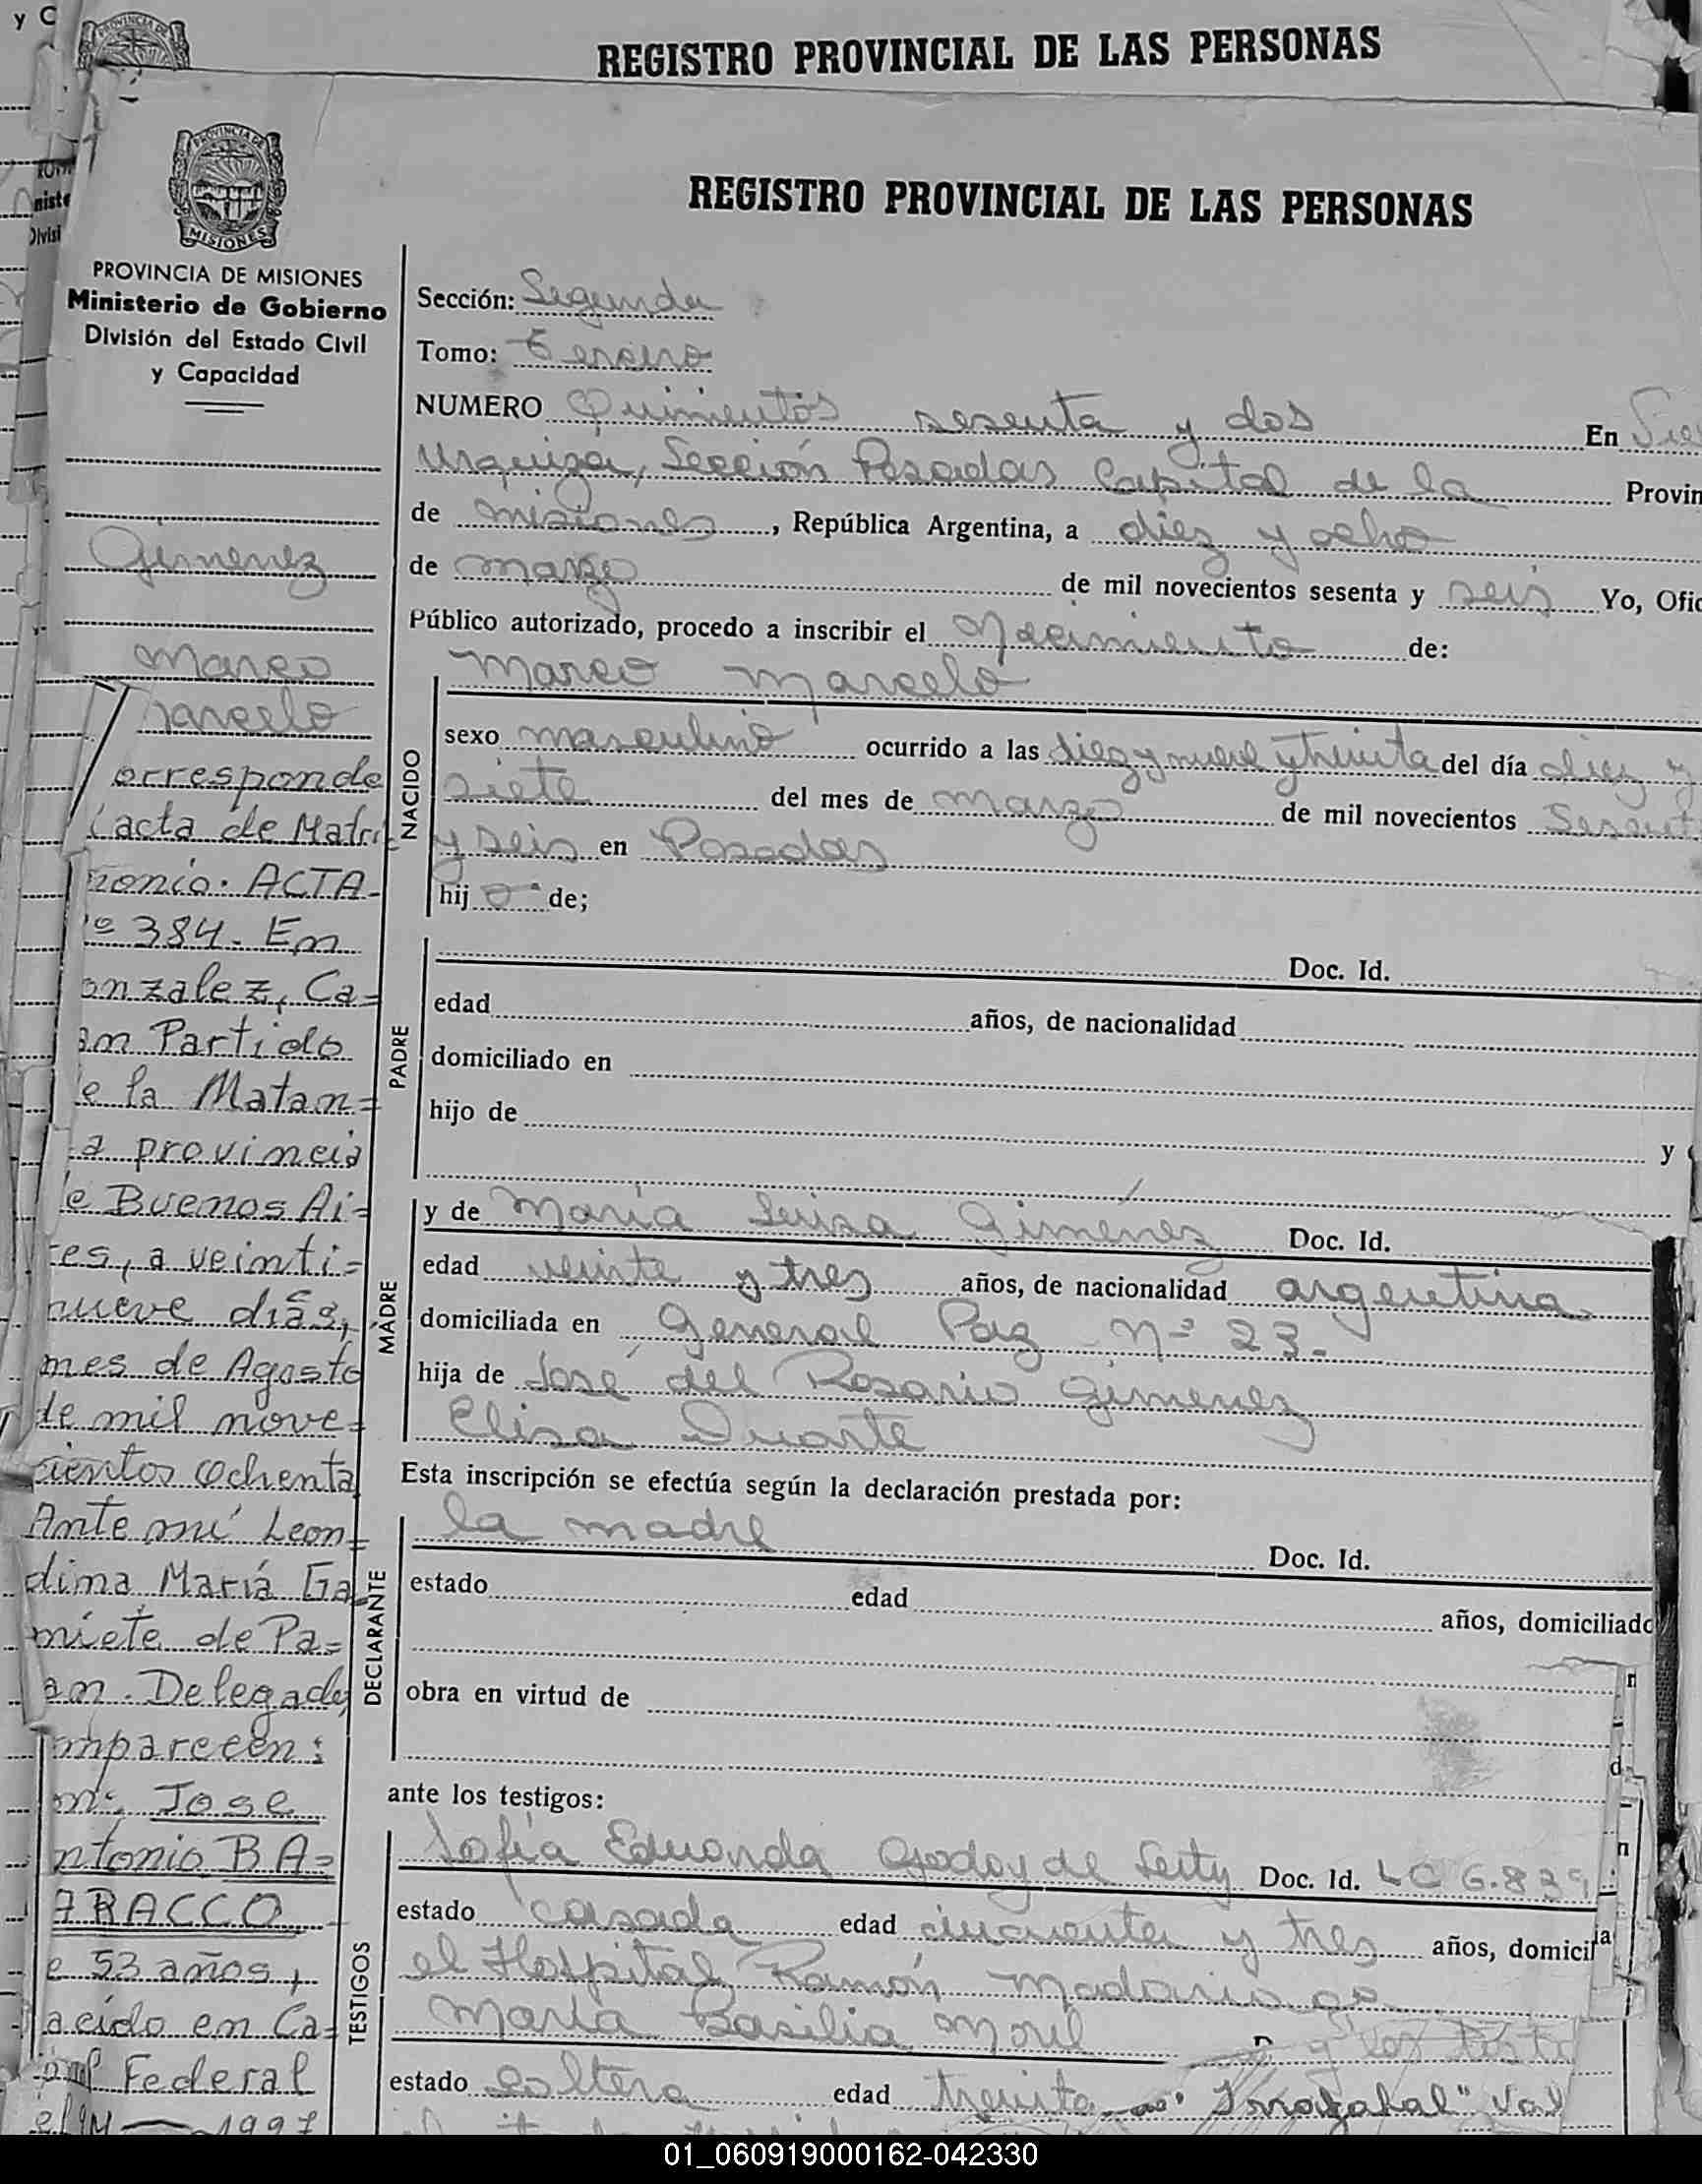 y C
REGISTRO PROVINCIAL DE LAS PERSONAS
PROVINCIA DE
MISIONES
REGISTRO PROVINCIAL DE LAS PERSONAS
PROVINCIA DE MISIONES
Ministerio de Gobierno
División del Estado Civil
y Capacidad
Gimenez
Marco
arcelo
orresponde
acta de Matri
monio. ACTA-
º 384. En
onzalez, Ca=
an Partido
e la Matan=
a provincia
e Buenos Ai=
res, a veinti=
nueve días,
mes de Agosto
de mil nove=
cientos ochenta
Ante mí Leon=
dina María Ga
miete de Pa=
an. Delegada,
mparecen:
Jose
ntonio BA=
RACCO
e 53 años,
acido en Ca=
Federal
1927
Sección: Segunda
Tomo: Tercero
NUMERO Quinientos sesenta y dos En
Urquiza, Sección Posadas Capital de la Provin
de Misiones, República Argentina, a diez y ocho
de marzo de mil novecientos sesenta y seis Yo, Ofic
Público autorizado, procedo a inscribir el Nacimiento de:
NACIDO
Marco Marcelo
sexo masculino ocurrido a las diez y nueve y treinta del día diez y
siete del mes de marzo de mil novecientos Sesent
y seis en Posadas
hijo de;
PADRE
Doc. Id.
edad años, de nacionalidad
domiciliado en
hijo de
y
MADRE
y de María Luisa Giménez Doc. Id.
edad veinte y tres años, de nacionalidad argentina
domiciliada en General Paz Nº 23.
hija de José del Rosario Gimenez
Elisa Duarte
Esta inscripción se efectúa según la declaración prestada por:
DECLARANTE
la madre Doc. Id.
estado edad años, domiciliado
obra en virtud de
ante los testigos:
TESTIGOS
Sofía Eduarda Godoy de Doc. Id. LC 6.839
estado casada edad cincuenta y tres años, domicil
el Hospital Ramón Madariaga
María Basilia
estado soltera edad treinta "Irrazabal" Val
01_060919000162-042330